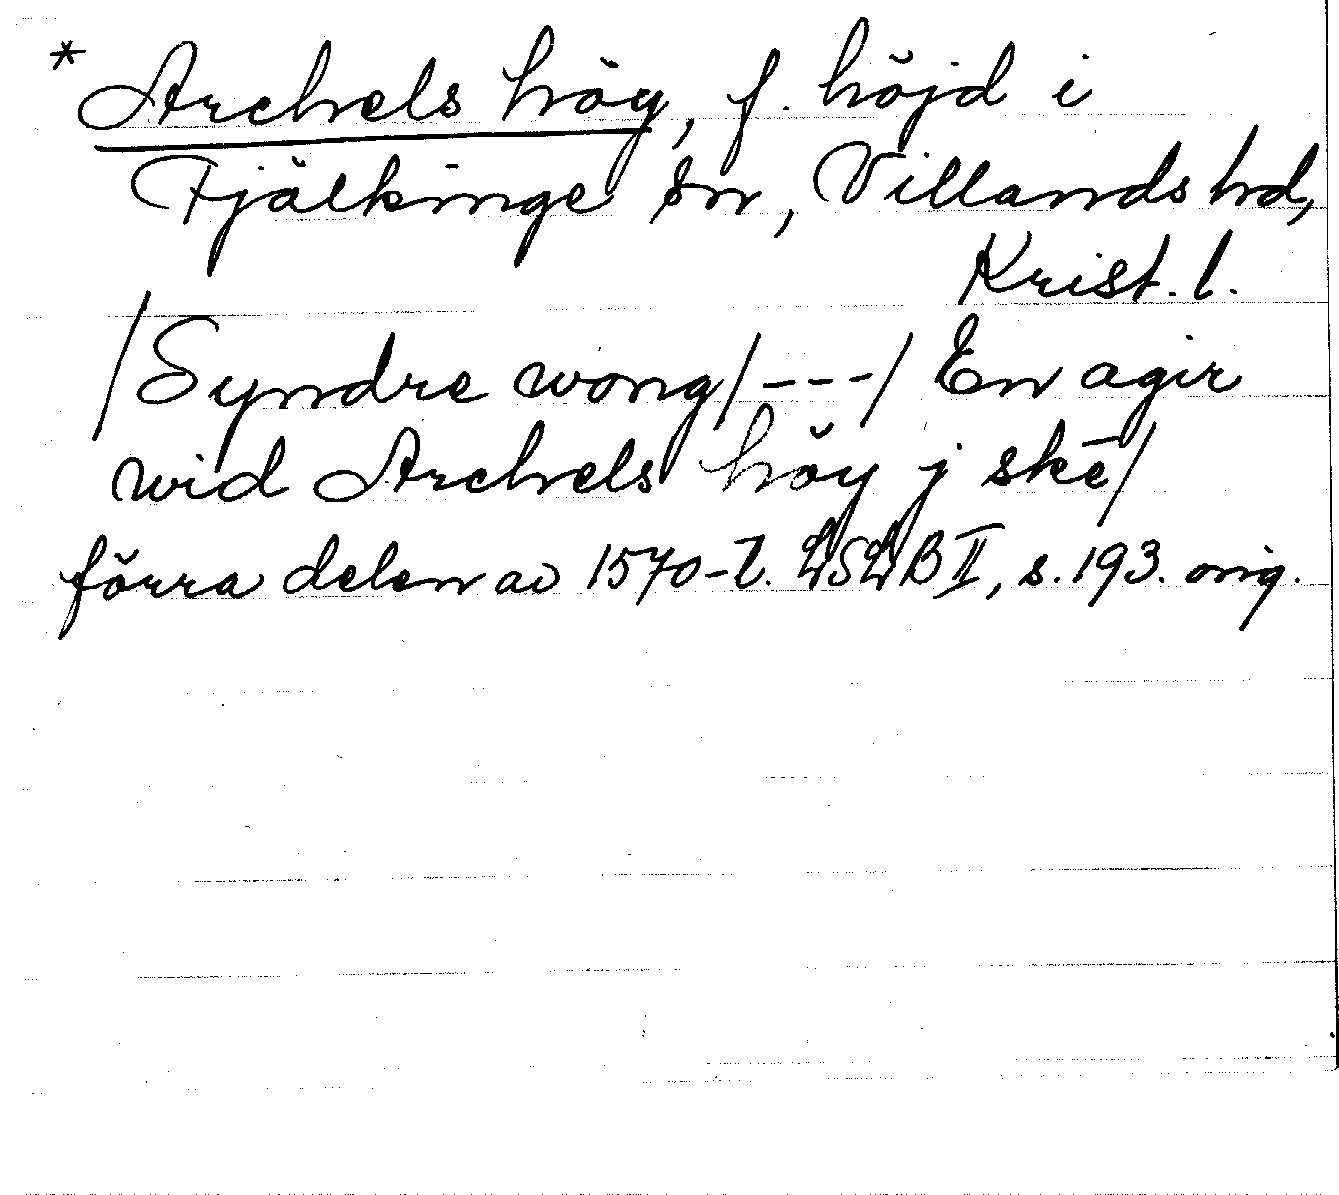 * Archels höy, f. höjd i
Fjälkinge sn, Villands hd,
Krist. l.
/Syndre wong/---/ En agir
wid Archels höy j skē/
förra delen av 1570-t. LSLB II, s. 193. orig.